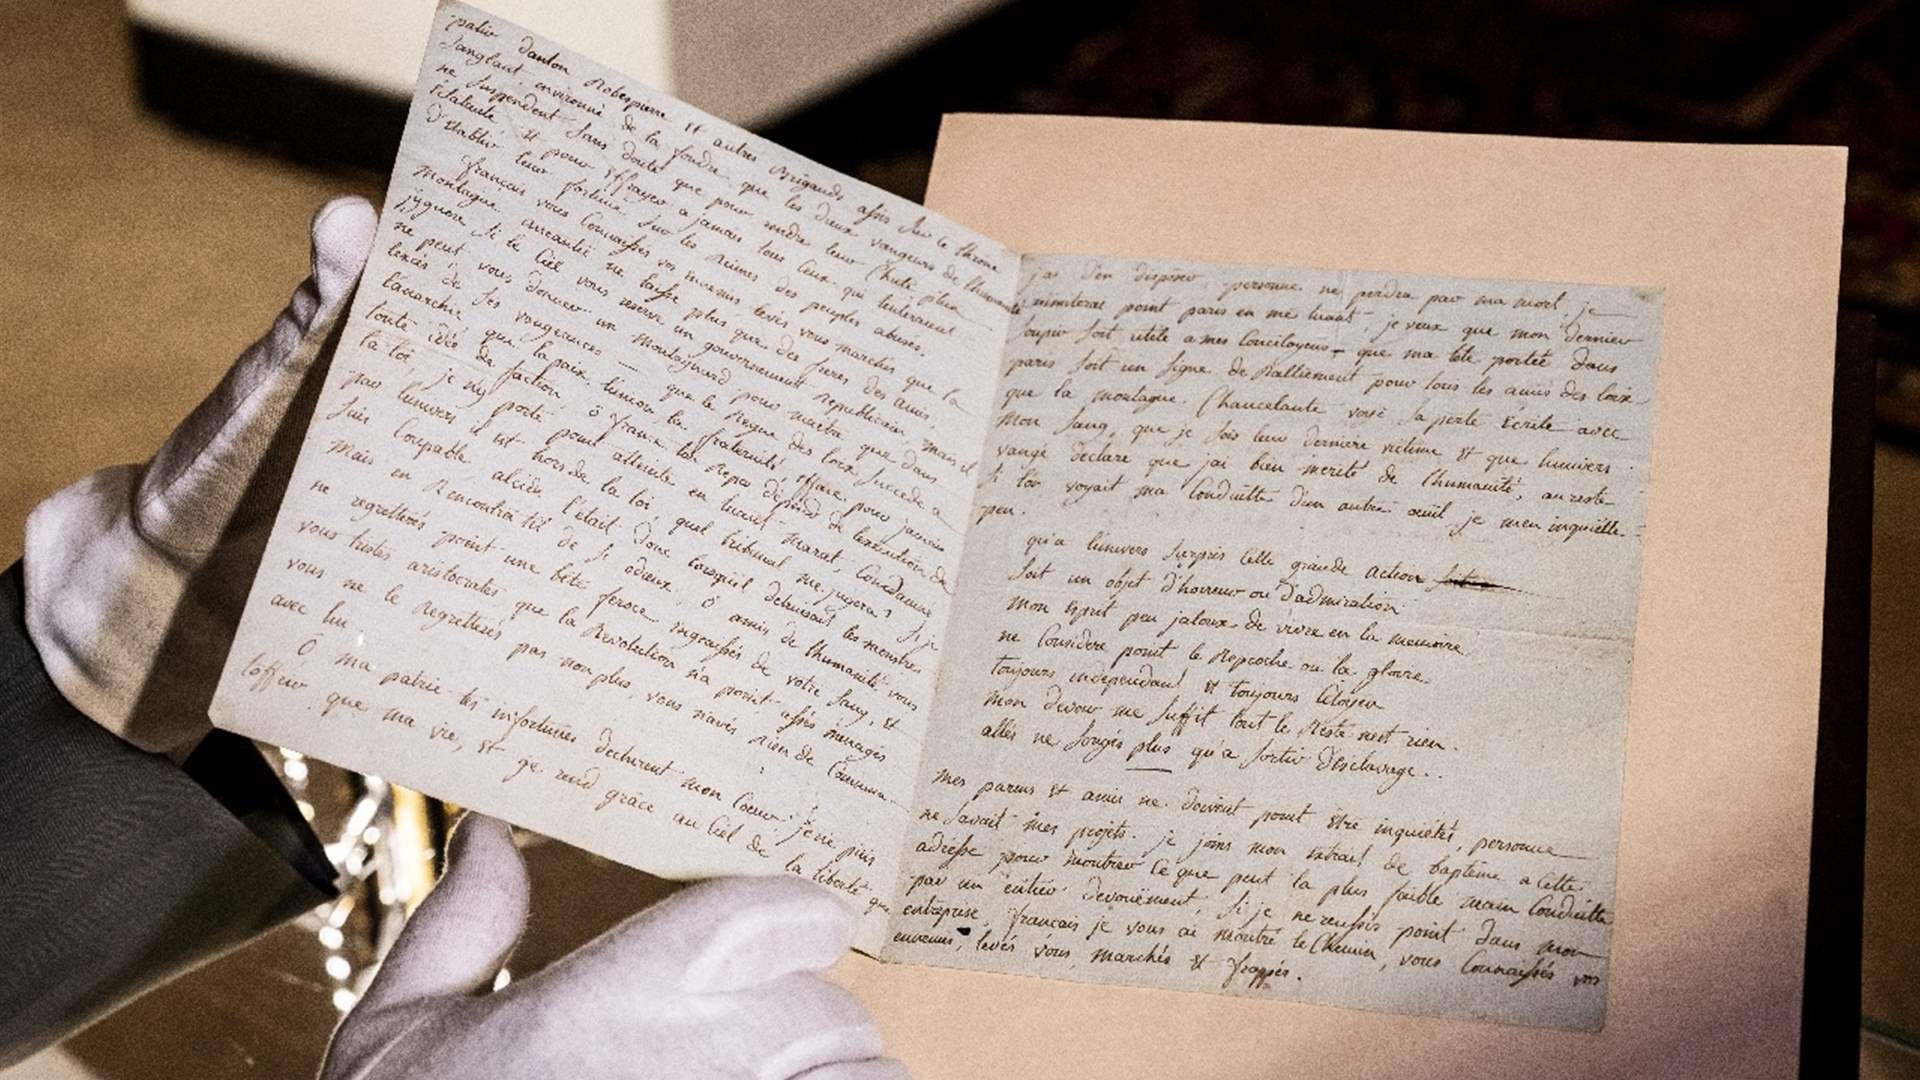 patir danton Robespierre et autres Brigands assis sur le throne
sanglant environné de la foudre que les dieux vangeurs de l'humanité
ne suspendent sans doute que pour rendre leur chute plus
éclatante et pour effrayer a jamais tous ceux qui tenteraient
d'etablir leur fortune sur les Ruines des peuples abusés.
français vous connaissés vos ennemis levés vous marchés que la
montagne aneantie ne laisse plus que des freres des amis,
j'ygnore si le ciel vous reserve un gouvernement republicain, mais il
ne peut vous donner un Montagnard pour maitre que dans
l'excés de ses vengeances — que le Regne des loix succede a
l'anarchie, que la paix, l'union, la fraternité efface pour jamais
toute idée de faction, ô france ton Repos dépend de l'exécution de
la loi, je n'y porte point atteinte en tuant Marat, Condamné
par l'univers il est hors de la loi quel tribunal me jugera? si je
suis Coupable, alcide l'était donc lorsquil detruisait les monstres,
Mais en Rencontra til de si odieux, ô amis de l'humanité vous
ne regretterés point une bête feroce engraissée de votre Sang, et
vous tristes aristocrates que la Revolution n'a point assés menagés
vous ne le Regretterés pas non plus, vous n'avés rien de Commun
avec lui.
Ô ma patrie tes infortunes dechirent mon Coeur; je ne puis
t'offrir que ma vie, et je rend grâce au Ciel de la liberté que
j'ai d'en disposer, personne ne perdra par ma mort, je
n'imiterai point paris en me tuant, je veux que mon dernier
soupir soit utile a mes Concitoyens – que ma tete portée dans
paris soit un signe de Ralliement pour tous les amis des loix
que la montagne Chancelante voye sa perte Écrite avec
mon Sang, que je sois leur derniere victime et que l'univers
vangé declare que jai bien merité de l'humanité, au reste
si l'on voyait ma Conduitte d'un autre oeuil je men inquiette
peu.
qu'a l'univers surpris Cette grande action
Soit un objet d'horreur ou d'admiration
Mon esprit peu jaloux de vivre en la memoire
ne Considere point le Reproche ou la gloire
toujours independant et toujours Citoyen
Mon devoir me Suffit tout le Reste nest rien.
allés ne songés plus qu'a sortir d'esclavage..
Mes parens et amis ne doivent point être inquietés, personne
ne savait mes projets. je joins mon extrait de baptême a Cette
adresse pour montrer Ce que peut la plus faible main Conduitte
par un entier devouëment. si je ne reussis point dans mon
entreprise, français je vous ai montré le Chemin, vous Connaissés vos
ennemis, levés vous, marchés et frappés.